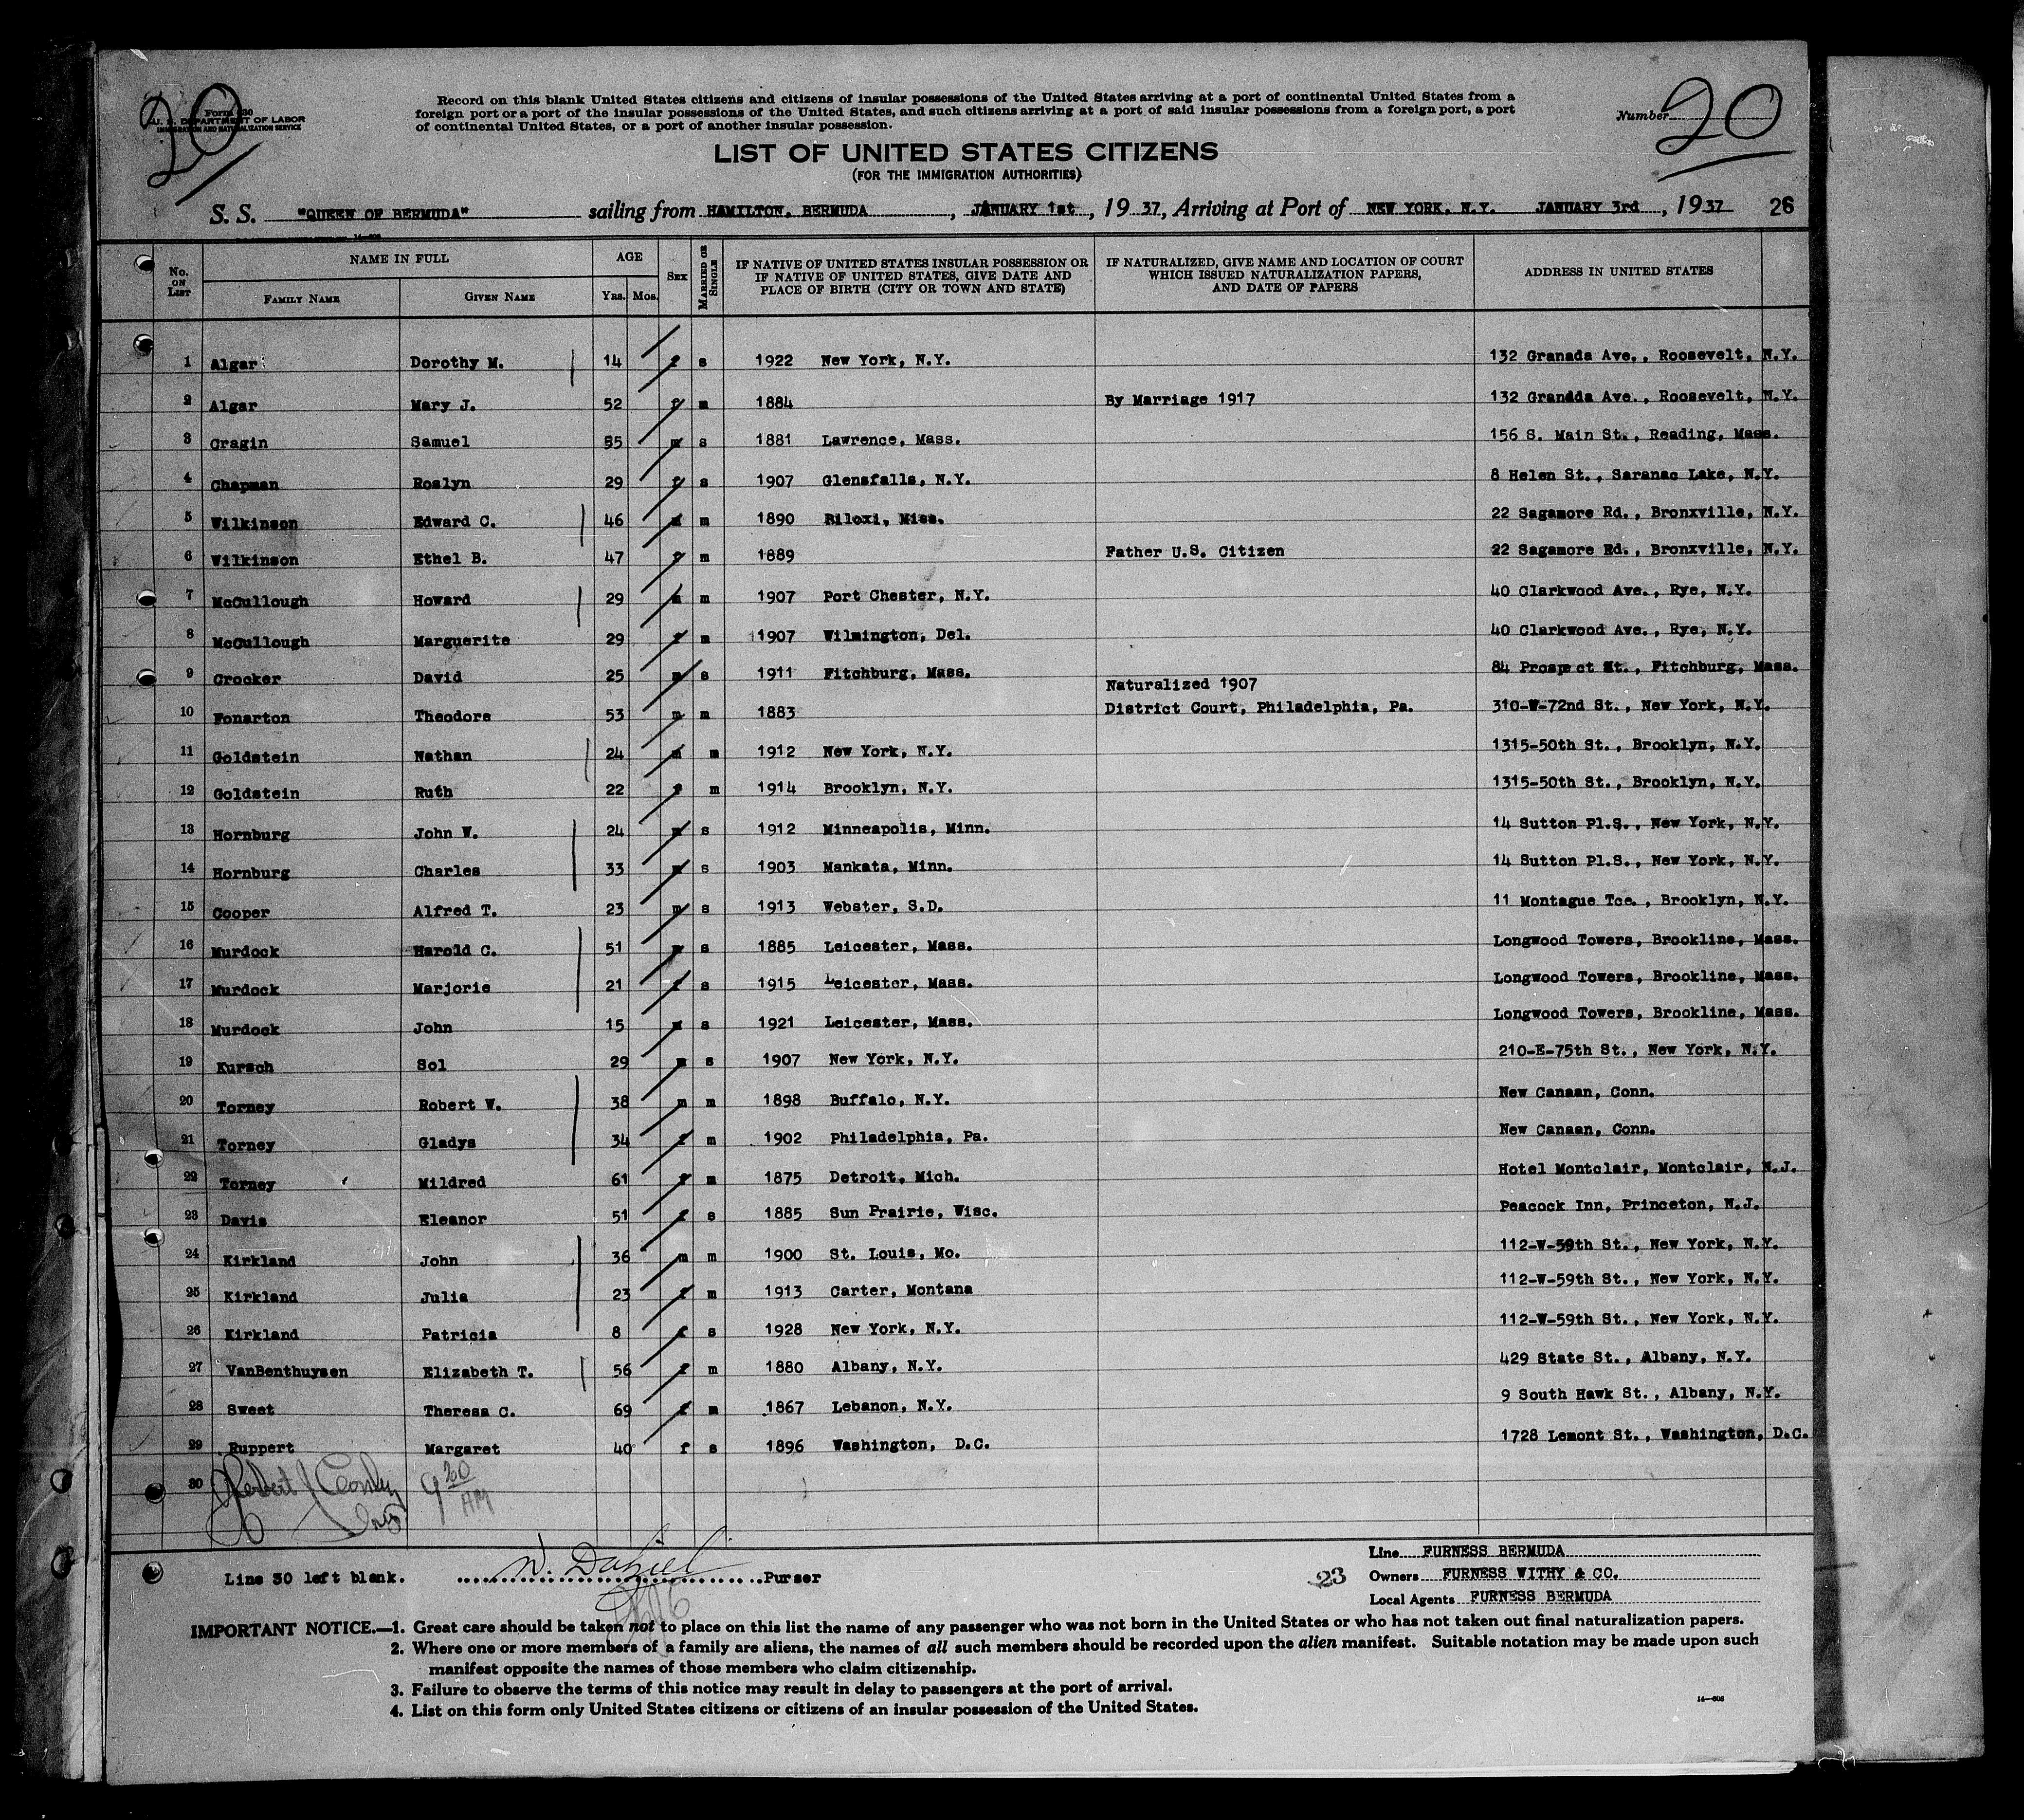 20
Form 630
U. S. DEPARTMENT OF LABOR
IMMIGRATION AND NATURALIZATION SERVICE
Record on this blank United States citizens and citizens of insular possessions of the United States arriving at a port of continental United States from a
foreign port or a port of the insular possessions of the United States, and such citizens arriving at a port of said insular possessions from a foreign port, a port
of continental United States, or a port of another insular possession.
Number 20
LIST OF UNITED STATES CITIZENS
(FOR THE IMMIGRATION AUTHORITIES)
S. S. "QUEEN OF BERMUDA" sailing from HAMILTON, BERMUDA, JANUARY 1st, 1937, Arriving at Port of NEW YORK, N.Y. JANUARY 3rd, 1937 26
No. ON LIST NAME IN FULL FAMILY NAME GIVEN NAME AGE Yrs. Mos. SEX MARRIED OR SINGLE IF NATIVE OF UNITED STATES INSULAR POSSESSION OR IF NATIVE OF UNITED STATES, GIVE DATE AND PLACE OF BIRTH (CITY OR TOWN AND STATE) IF NATURALIZED, GIVE NAME AND LOCATION OF COURT WHICH ISSUED NATURALIZATION PAPERS, AND DATE OF PAPERS ADDRESS IN UNITED STATES
1 Algar Dorothy M. 14 f s 1922 New York, N.Y. 132 Granada Ave., Roosevelt, N.Y.
2 Algar Mary J. 52 f m 1884 By Marriage 1917 132 Granada Ave., Roosevelt, N.Y.
3 Cragin Samuel 55 m s 1881 Lawrence, Mass. 156 S. Main St., Reading, Mass.
4 Chapman Roslyn 29 f s 1907 Glensfalls, N.Y. 8 Helen St., Saranac Lake, N.Y.
5 Wilkinson Edward C. 46 m m 1890 Biloxi, Miss. 22 Sagamore Rd., Bronxville, N.Y.
6 Wilkinson Ethel B. 47 f m 1889 Father U.S. Citizen 22 Sagamore Rd., Bronxville, N.Y.
7 McCullough Howard 29 m m 1907 Port Chester, N.Y. 40 Clarkwood Ave., Rye, N.Y.
8 McCullough Marguerite 29 f m 1907 Wilmington, Del. 40 Clarkwood Ave., Rye, N.Y.
9 Crocker David 25 m s 1911 Fitchburg, Mass. 84 Prospect St., Fitchburg, Mass.
Naturalized 1907
10 Fonarton Theodore 53 m m 1883 District Court, Philadelphia, Pa. 310-W-72nd St., New York, N.Y.
11 Goldstein Nathan 24 m m 1912 New York, N.Y. 1315-50th St., Brooklyn, N.Y.
12 Goldstein Ruth 22 f m 1914 Brooklyn, N.Y. 1315-50th St., Brooklyn, N.Y.
13 Hornburg John W. 24 m s 1912 Minneapolis, Minn. 14 Sutton Pl.S., New York, N.Y.
14 Hornburg Charles 33 m s 1903 Mankata, Minn. 14 Sutton Pl.S., New York, N.Y.
15 Cooper Alfred T. 23 m s 1913 Webster, S.D. 11 Montague Tce., Brooklyn, N.Y.
16 Murdock Harold C. 51 m s 1885 Leicester, Mass. Longwood Towers, Brookline, Mass.
17 Murdock Marjorie 21 f s 1915 Leicester, Mass. Longwood Towers, Brookline, Mass.
18 Murdock John 15 m s 1921 Leicester, Mass. Longwood Towers, Brookline, Mass.
19 Kursch Sol 29 m s 1907 New York, N.Y. 210-E-75th St., New York, N.Y.
20 Torney Robert W. 38 m m 1898 Buffalo, N.Y. New Canaan, Conn.
21 Torney Gladys 34 f m 1902 Philadelphia, Pa. New Canaan, Conn.
22 Torney Mildred 61 f m 1875 Detroit, Mich. Hotel Montclair, Montclair, N.J.
23 Davis Eleanor 51 f s 1885 Sun Prairie, Wisc. Peacock Inn, Princeton, N.J.
24 Kirkland John 36 m m 1900 St. Louis, Mo. 112-W-59th St., New York, N.Y.
25 Kirkland Julia 23 f m 1913 Carter, Montana 112-W-59th St., New York, N.Y.
26 Kirkland Patricia 8 f s 1928 New York, N.Y. 112-W-59th St., New York, N.Y.
27 VanBenthuysen Elizabeth T. 56 f m 1880 Albany, N.Y. 429 State St., Albany, N.Y.
28 Sweet Theresa C. 69 f m 1867 Lebanon, N.Y. 9 South Hawk St., Albany, N.Y.
29 Ruppert Margaret 40 f s 1896 Washington, D.C. 1728 Lemont St., Washington, D.C.
30 Herbert J 9 20 AM
Line 30 left blank. W. Daniel Purser
23
Line FURNESS BERMUDA
Owners FURNESS WITHY & CO.
Local Agents FURNESS BERMUDA
IMPORTANT NOTICE.—1. Great care should be taken not to place on this list the name of any passenger who was not born in the United States or who has not taken out final naturalization papers.
2. Where one or more members of a family are aliens, the names of all such members should be recorded upon the alien manifest. Suitable notation may be made upon such
manifest opposite the names of those members who claim citizenship.
3. Failure to observe the terms of this notice may result in delay to passengers at the port of arrival.
4. List on this form only United States citizens or citizens of an insular possession of the United States.
14—606